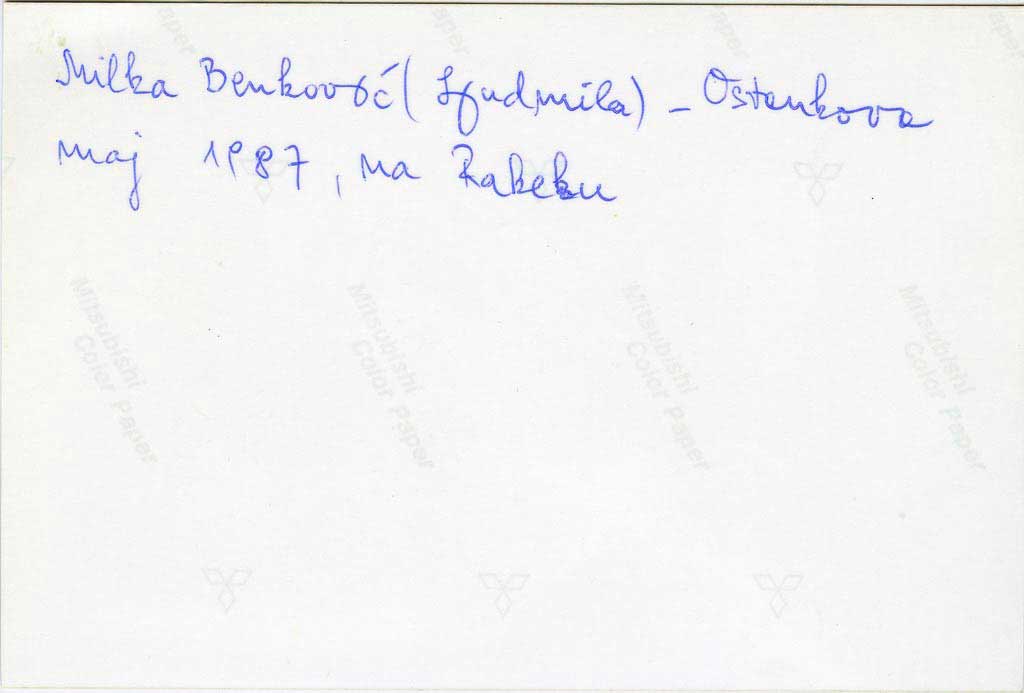 Paper
Paper
Paper
Paper
Milka Benković (Ljudmila) - Ostankova
maj 1987, na Rakeku
Mitsubishi
Color Paper
Mitsubishi
Color Paper
Mitsubishi
Color Paper
Mitsubishi
Color Paper